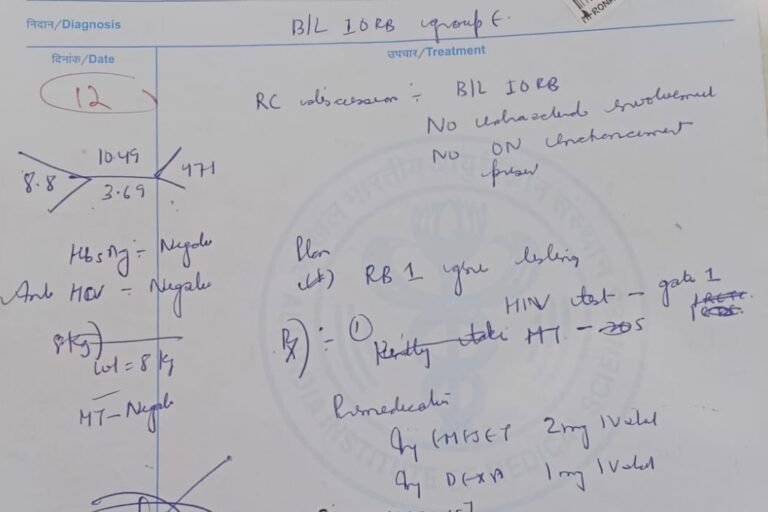 निदान/Diagnosis
B/L IORB group E.
दिनांक/Date
उपचार/Treatment
12
RC discussion :- B/L IORB
No extrascleral involvement
No ON enhancement
10.49
8.8
471
3.69
HbsAg :- Negative
Anti HCV - Negative
Plan
RB 1 gene testing
HIV test - gate 1
8 Kg
wt = 8 Kg
Rx :- ① Kindly take MT - 
MT - Negative
Premedication
Inj EMISET 2mg IV stat
Inj DEXA 1mg IV stat